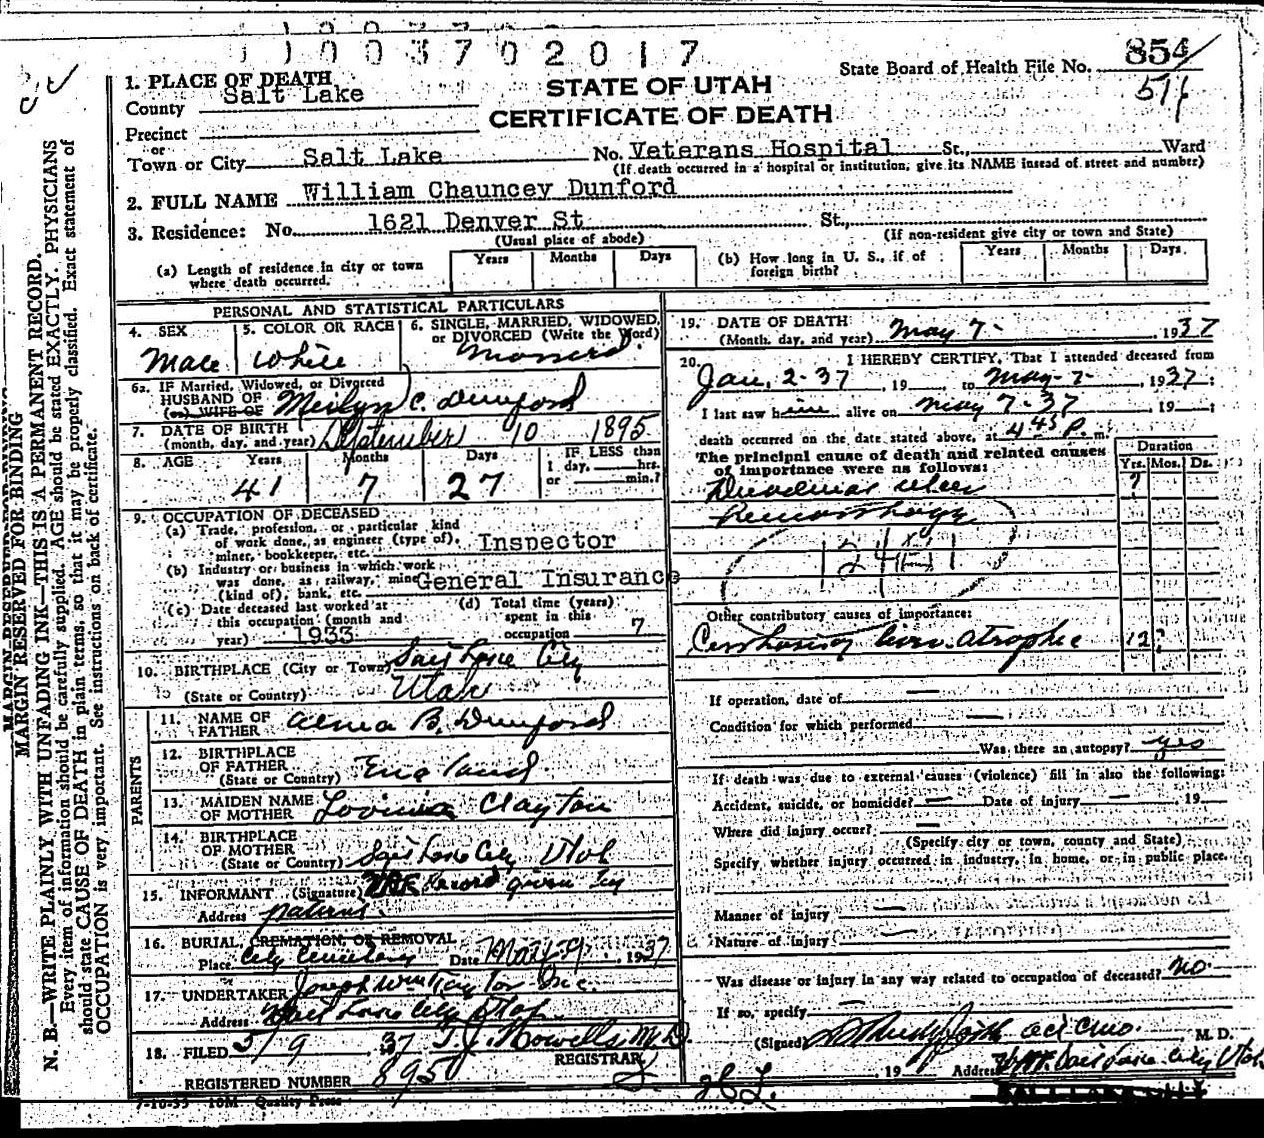 11003702017
State Board of Health File No. 854
1. PLACE OF DEATH
STATE OF UTAH
CERTIFICATE OF DEATH
County Salt Lake
Precinct
or
Town or City Salt Lake No. Veterans Hospital St., Ward
(If death occurred in a hospital or institution, give its NAME instead of street and number)
2. FULL NAME William Chauncey Dunford
3. Residence: No. 1621 Denver St St.,
(Usual place of abode) (If non-resident give city or town and State)
(a) Length of residence in city or town where death occurred. Years Months Days
(b) How long in U. S., if of foreign birth? Years Months Days
PERSONAL AND STATISTICAL PARTICULARS
4. SEX Male
5. COLOR OR RACE White
6. SINGLE, MARRIED, WIDOWED, or DIVORCED (Write the Word) Married
6a. IF Married, Widowed, or Divorced
HUSBAND OF
(or) WIFE OF Merlyn C. Dunford
7. DATE OF BIRTH
(month, day, and year) September 10 1895
8. AGE Years 41 Months 7 Days 27 IF LESS than 1 day, hrs. or min.?
9. OCCUPATION OF DECEASED
(a) Trade, profession, or particular kind
of work done, as engineer (type of),
miner, bookkeeper, etc. Inspector
(b) Industry or business in which work
was done, as railway, mine
(kind of), bank, etc. General Insurance
(c) Date deceased last worked at
this occupation (month and
year) 1933
(d) Total time (years)
spent in this
occupation 7
10. BIRTHPLACE (City or Town) Salt Lake City
(State or Country) Utah
PARENTS
11. NAME OF FATHER Alma B. Dunford
12. BIRTHPLACE OF FATHER
(State or Country) England
13. MAIDEN NAME OF MOTHER Lovinia Clayton
14. BIRTHPLACE OF MOTHER
(State or Country) Salt Lake City Utah
15. INFORMANT (Signature) VAF Record given by
Address patient.
16. BURIAL, CREMATION, OR REMOVAL
Place City Cemetery Date May-9-, 1937
17. UNDERTAKER Joseph Wm Taylor Inc.
Address Salt Lake City Utah
18. FILED 5/9 37 T. J. Howells, M.D.
REGISTRAR
REGISTERED NUMBER 895
7-10-33 10M Quality Press
19. DATE OF DEATH
(Month, day, and year) May 7- 1937
20. I HEREBY CERTIFY, That I attended deceased from
Jan. 2-37, 19 to May-7-, 1937;
I last saw him alive on May 7-37, 19 ;
death occurred on the date stated above, at 4 45 P. m.
The principal cause of death and related causes
of importance were as follows:
Duration
Yrs. Mos. Ds.
Duodenal ulcer ?
Hemorrhage
Other contributory causes of importance:
Cirrhosis of liver atrophic 12?
If operation, date of —
Condition for which performed —
Was there an autopsy? yes
If death was due to external causes (violence) fill in also the following:
Accident, suicide, or homicide? — Date of injury — 19
Where did injury occur? —
(Specify city or town, county and State)
Specify whether injury occurred in industry, in home, or in public place.
Manner of injury —
Nature of injury —
Was disease or injury in any way related to occupation of deceased? no.
If so, specify —
(Signed) M. D.
, 19 Address VAF. Salt Lake City Utah
MARGIN RESERVED FOR BINDING
N. B.—WRITE PLAINLY WITH UNFADING INK—THIS IS A PERMANENT RECORD.
Every item of information should be carefully supplied. AGE should be stated EXACTLY. PHYSICIANS
should state CAUSE OF DEATH in plain terms, so that it may be properly classified. Exact statement of
OCCUPATION is very important. See instructions on back of certificate.